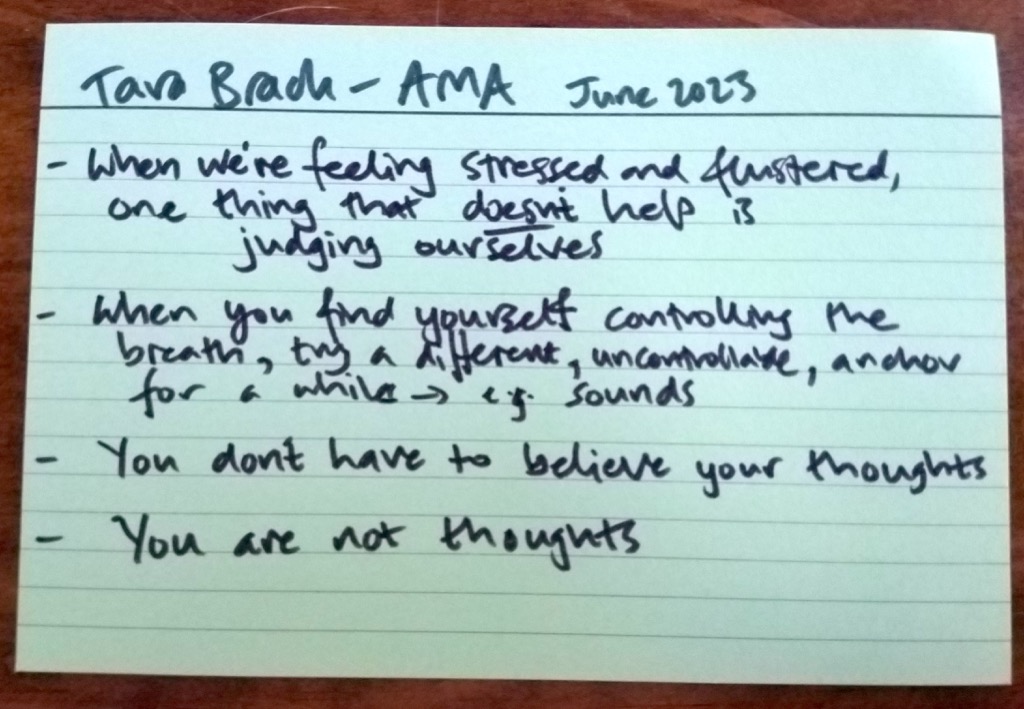 Tara Brach - AMA June 2023
- When we're feeling stressed and flustered,
one thing that doesn't help is
judging ourselves
- When you find yourself controlling the
breath, try a different, uncontrollable, anchor
for a while → e.g. sounds
- You don't have to believe your thoughts
- You are not thoughts